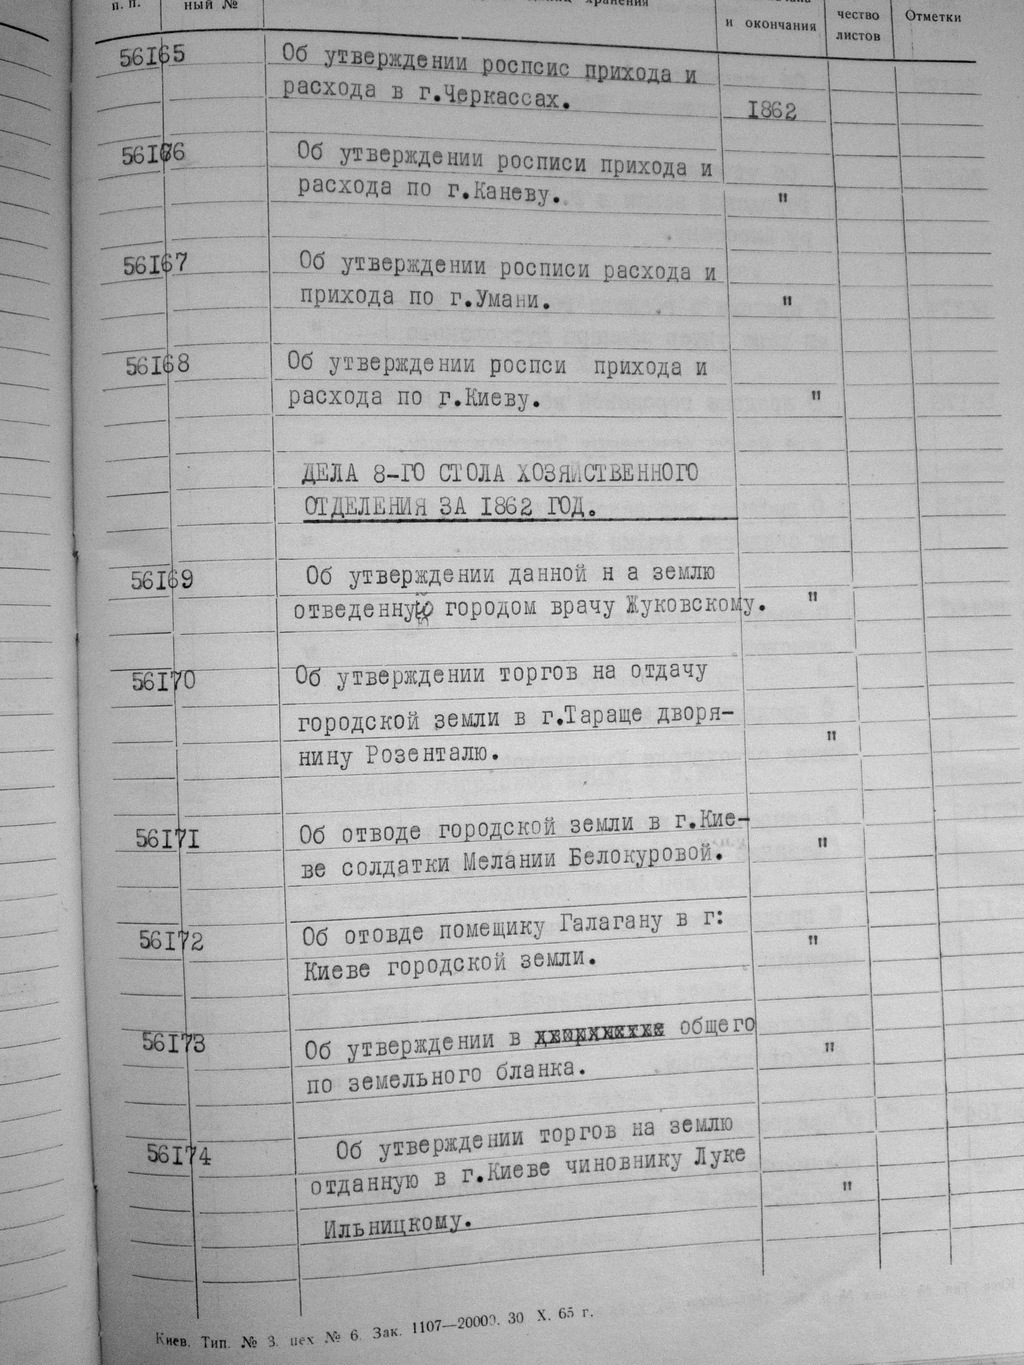 п. п.
ный №
хранения
и окончания
чество
листов
Отметки
56165
Об утверждении роспсис прихода и
расхода в г.Черкассах.
1862
56166
Об утверждении росписи прихода и
расхода по г.Каневу.
"
56167
Об утверждении росписи расхода и
прихода по г.Умани.
"
56168
Об утверждении роспси прихода и
расхода по г.Киеву.
"
ДЕЛА 8-ГО СТОЛА ХОЗЯЙСТВЕННОГО
ОТДЕЛЕНИЯ ЗА 1862 ГОД.
56169
Об утверждении данной н а землю
отведенную городом врачу Жуковскому.
"
56170
Об утверждении торгов на отдачу
городской земли в г.Тараще дворя-
нину Розенталю.
"
56171
Об отводе городской земли в г.Кие-
ве солдатки Мелании Белокуровой.
"
56172
Об отовде помещику Галагану в г:
Киеве городской земли.
"
56173
Об утверждении в общего
по земельного бланка.
"
56174
Об утверждении торгов на землю
отданную в г.Киеве чиновнику Луке
Ильницкому.
"
Киев. Тип. № 3. цех № 6. Зак. 1107—20000. 30 X. 65 г.